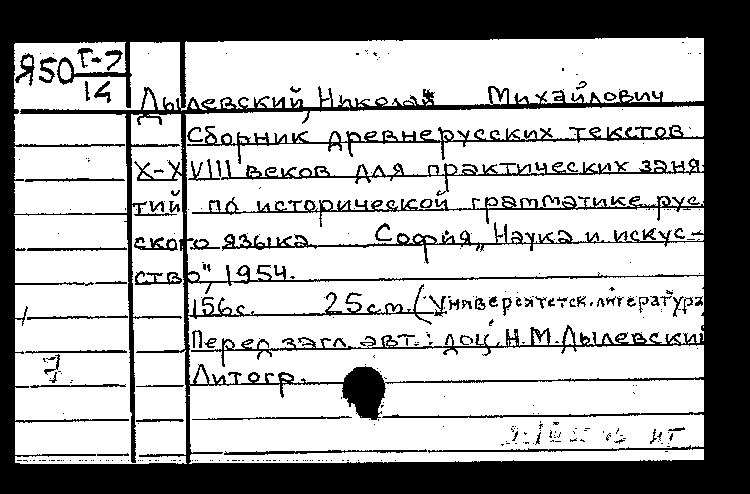 Я50 Г-2
14
Дылевский, Николай Михайлович
Сборник древнерусских текстов
X-XVIII веков для практических заня-
тий по исторической грамматике рус-
ского языка. София, "Наука и искус-
ство", 1954.
156с. 25см. (Университетск. литература)
Перед загл. авт.: доц. Н.М. Дылевский
7 Литогр.
НГ